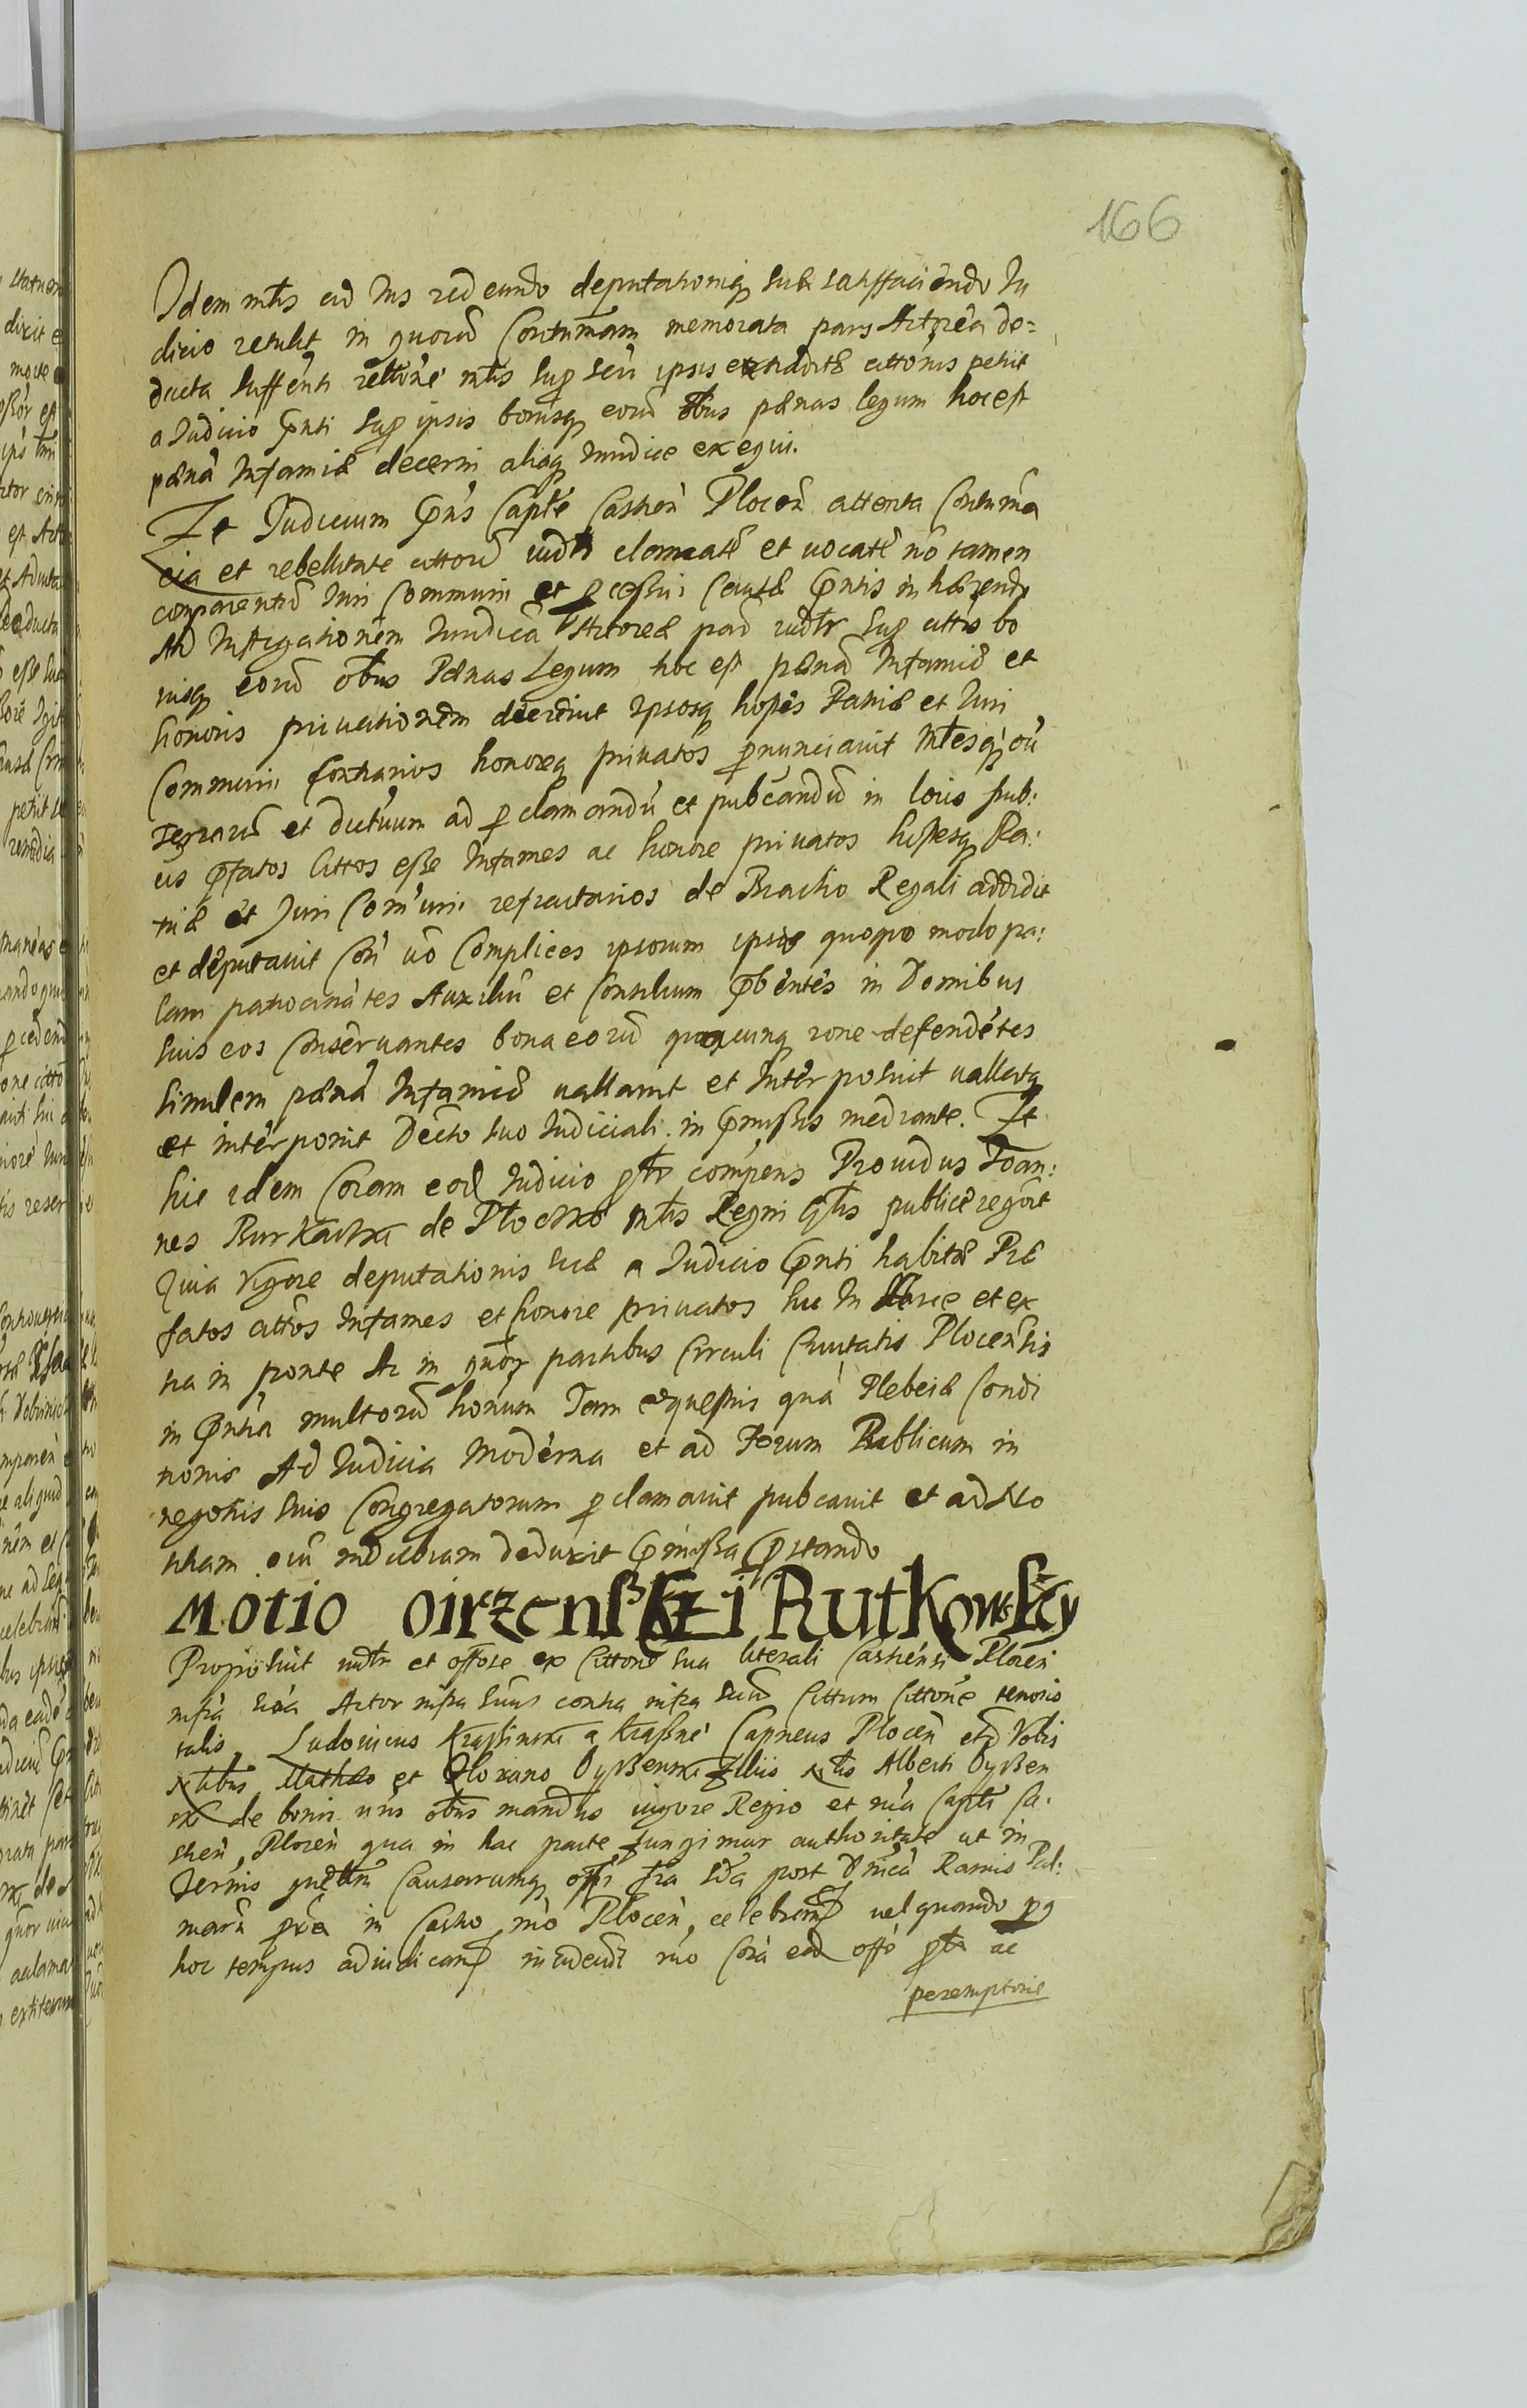 166
Idem mtis ad Ius redeundo deputationiq sub satisfaciendo Iu
dicio retulit in quorũ Contumam memorata pars Actorea de=
ducta suffenti reltione mtis sup seu ipsis extradite cittonis petiit
a Iudicio pnti sup ipsis bonisq eorũ obus pænas legum hoc est
pænã Infamiæ decerni aliaq Iuridice exequi.
Et Iudicium pns Capte Castren Plocen attenta Contuma
cia et rebellitate cittorũ iudtr clamate et uocate nõ tamen
comparentiũ Iuri Communi et pcessui causæ pntis inhærendo
Ad Instigationem Iuridicã Actoreæ pad iudtr sup cittis bo
nisq eorũ obus Pænas Legum hoc est pænã Infamiæ et
honoris priuationem decreuit Ipsosq hostes Patriæ et Iuri
Communi Contrarios honoreq priuatos pnunciauit Mtesq oũ
terrarũ et districtuum ad pclamandũ et pubcandũ in locis pub:
cis pfatos Cittos esse Infames ac honore priuatos hostesq Pa:
triæ et Iuri Com̃uni refractarios de Brachio Regali addidit
et deputauit Cõi uõ Complices ipsorum ipsis quoquo modo pa:
lam patrocinãtes Auxiliũ et Consilium pbentes in Domibus
suis eos Conseruantes bona eorũ quacunq rone defendẽtes
similem pænã Infamiæ uallauit et Interposuit uallatq
et interponit Decto suo Iudiciali in pmissis mediante. Et
hic idem Coram eod Iudicio ptr compens Prouidus Joan:
nes Burkaczka de Plocko mtis Regni Gtis publice recogt
Quia Vigore deputationis suæ a Iudicio pnti habitæ Præ
fatos cittos Infames et honore priuatos hic In Arce et ex
tra in ponte Ac in quor partibus Circuli Ciuitatis Plocensis
in pntia multorũ honum Tam equestris quã Plebeiæ Condi
tionis Ad Iudicia Moderna et ad Forum Publicum in
negotiis suis Congregatorum pclamauit pubcauit et ad No
titiam oiũ indubiam deduxit pmissa pstando
Motio Rutkowsky
Proposuit iudtr et offose ex Cittone sua literali Castrensi Plocen
infra sua Actor infra suus contra infra suũ Cittum Cittone tenoris
talis Ludouicus Krassinski a Krasne Capneus Plocen etc Vobis
Ntibus et Floriano Oyrzenski Filiis Ntis Alberti Oyrzen
ski de bonis uris obus mandus uigore Regio et nra Capti Ca.
stren Plocen qua in hac parte fungimur authoritate ut in
Termis querelarum Causarumq offi fra 2da post Dnicã Ramis Pal:
marũ pxa in Castro nro Plocen celebrand uel quando pq
hoc tempus adiudicand incidend nro Corã eod offo ptr ac
peremptorie